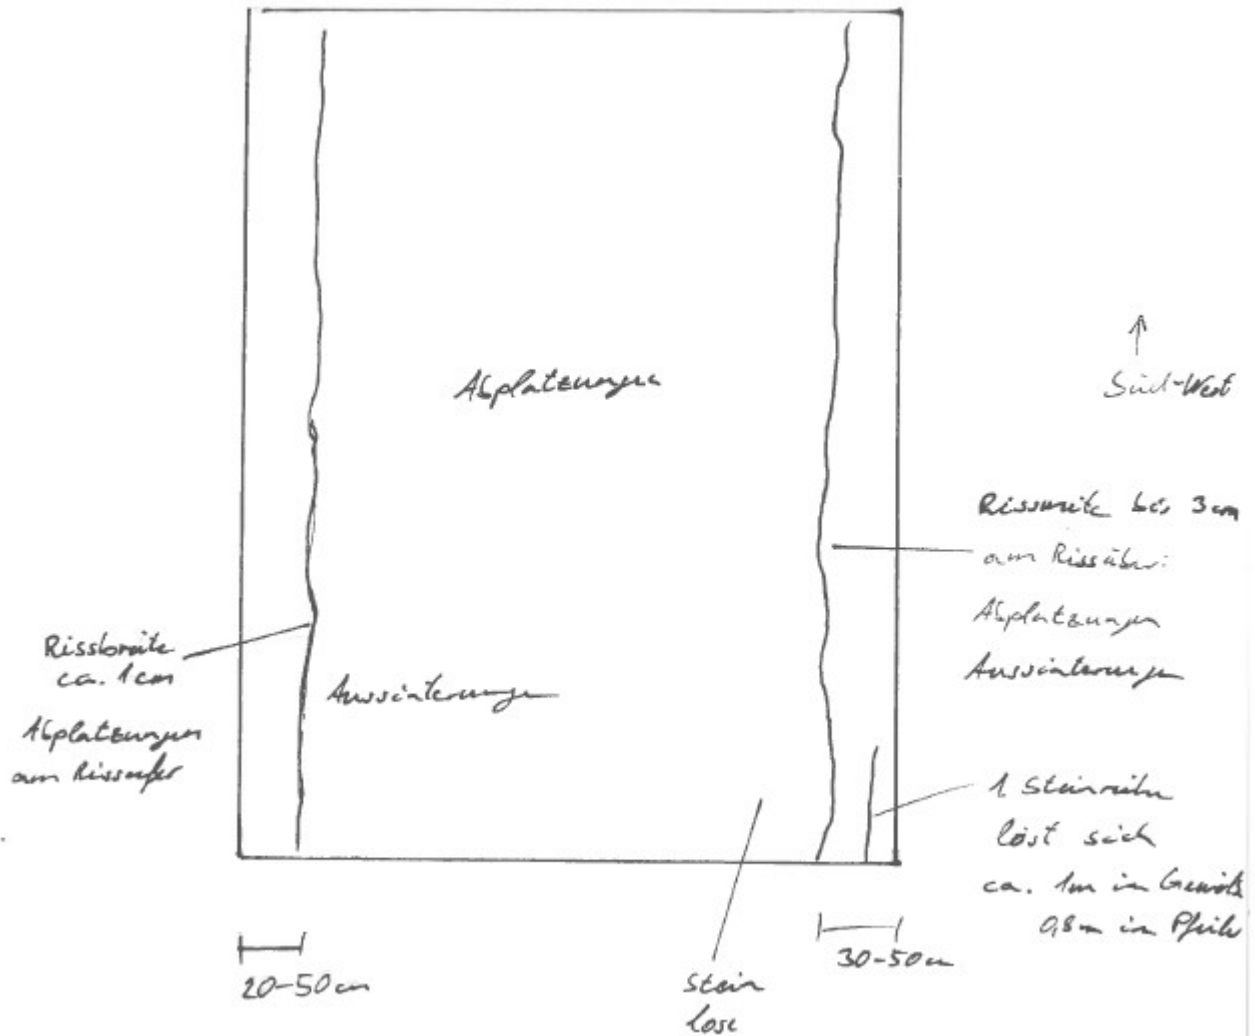 Abplatzungen
Süd-West
Rissbreite bis 3cm
am Rissufer:
Abplatzungen
Aussinterungen
Rissbreite
ca. 1cm
Abplatzungen
am Rissufer
Aussinterungen
1 Steinreihe
löst sich
ca. 1m im Gewölbe
0,8m im Pfeiler
20-50cm
Stein
lose
30-50cm